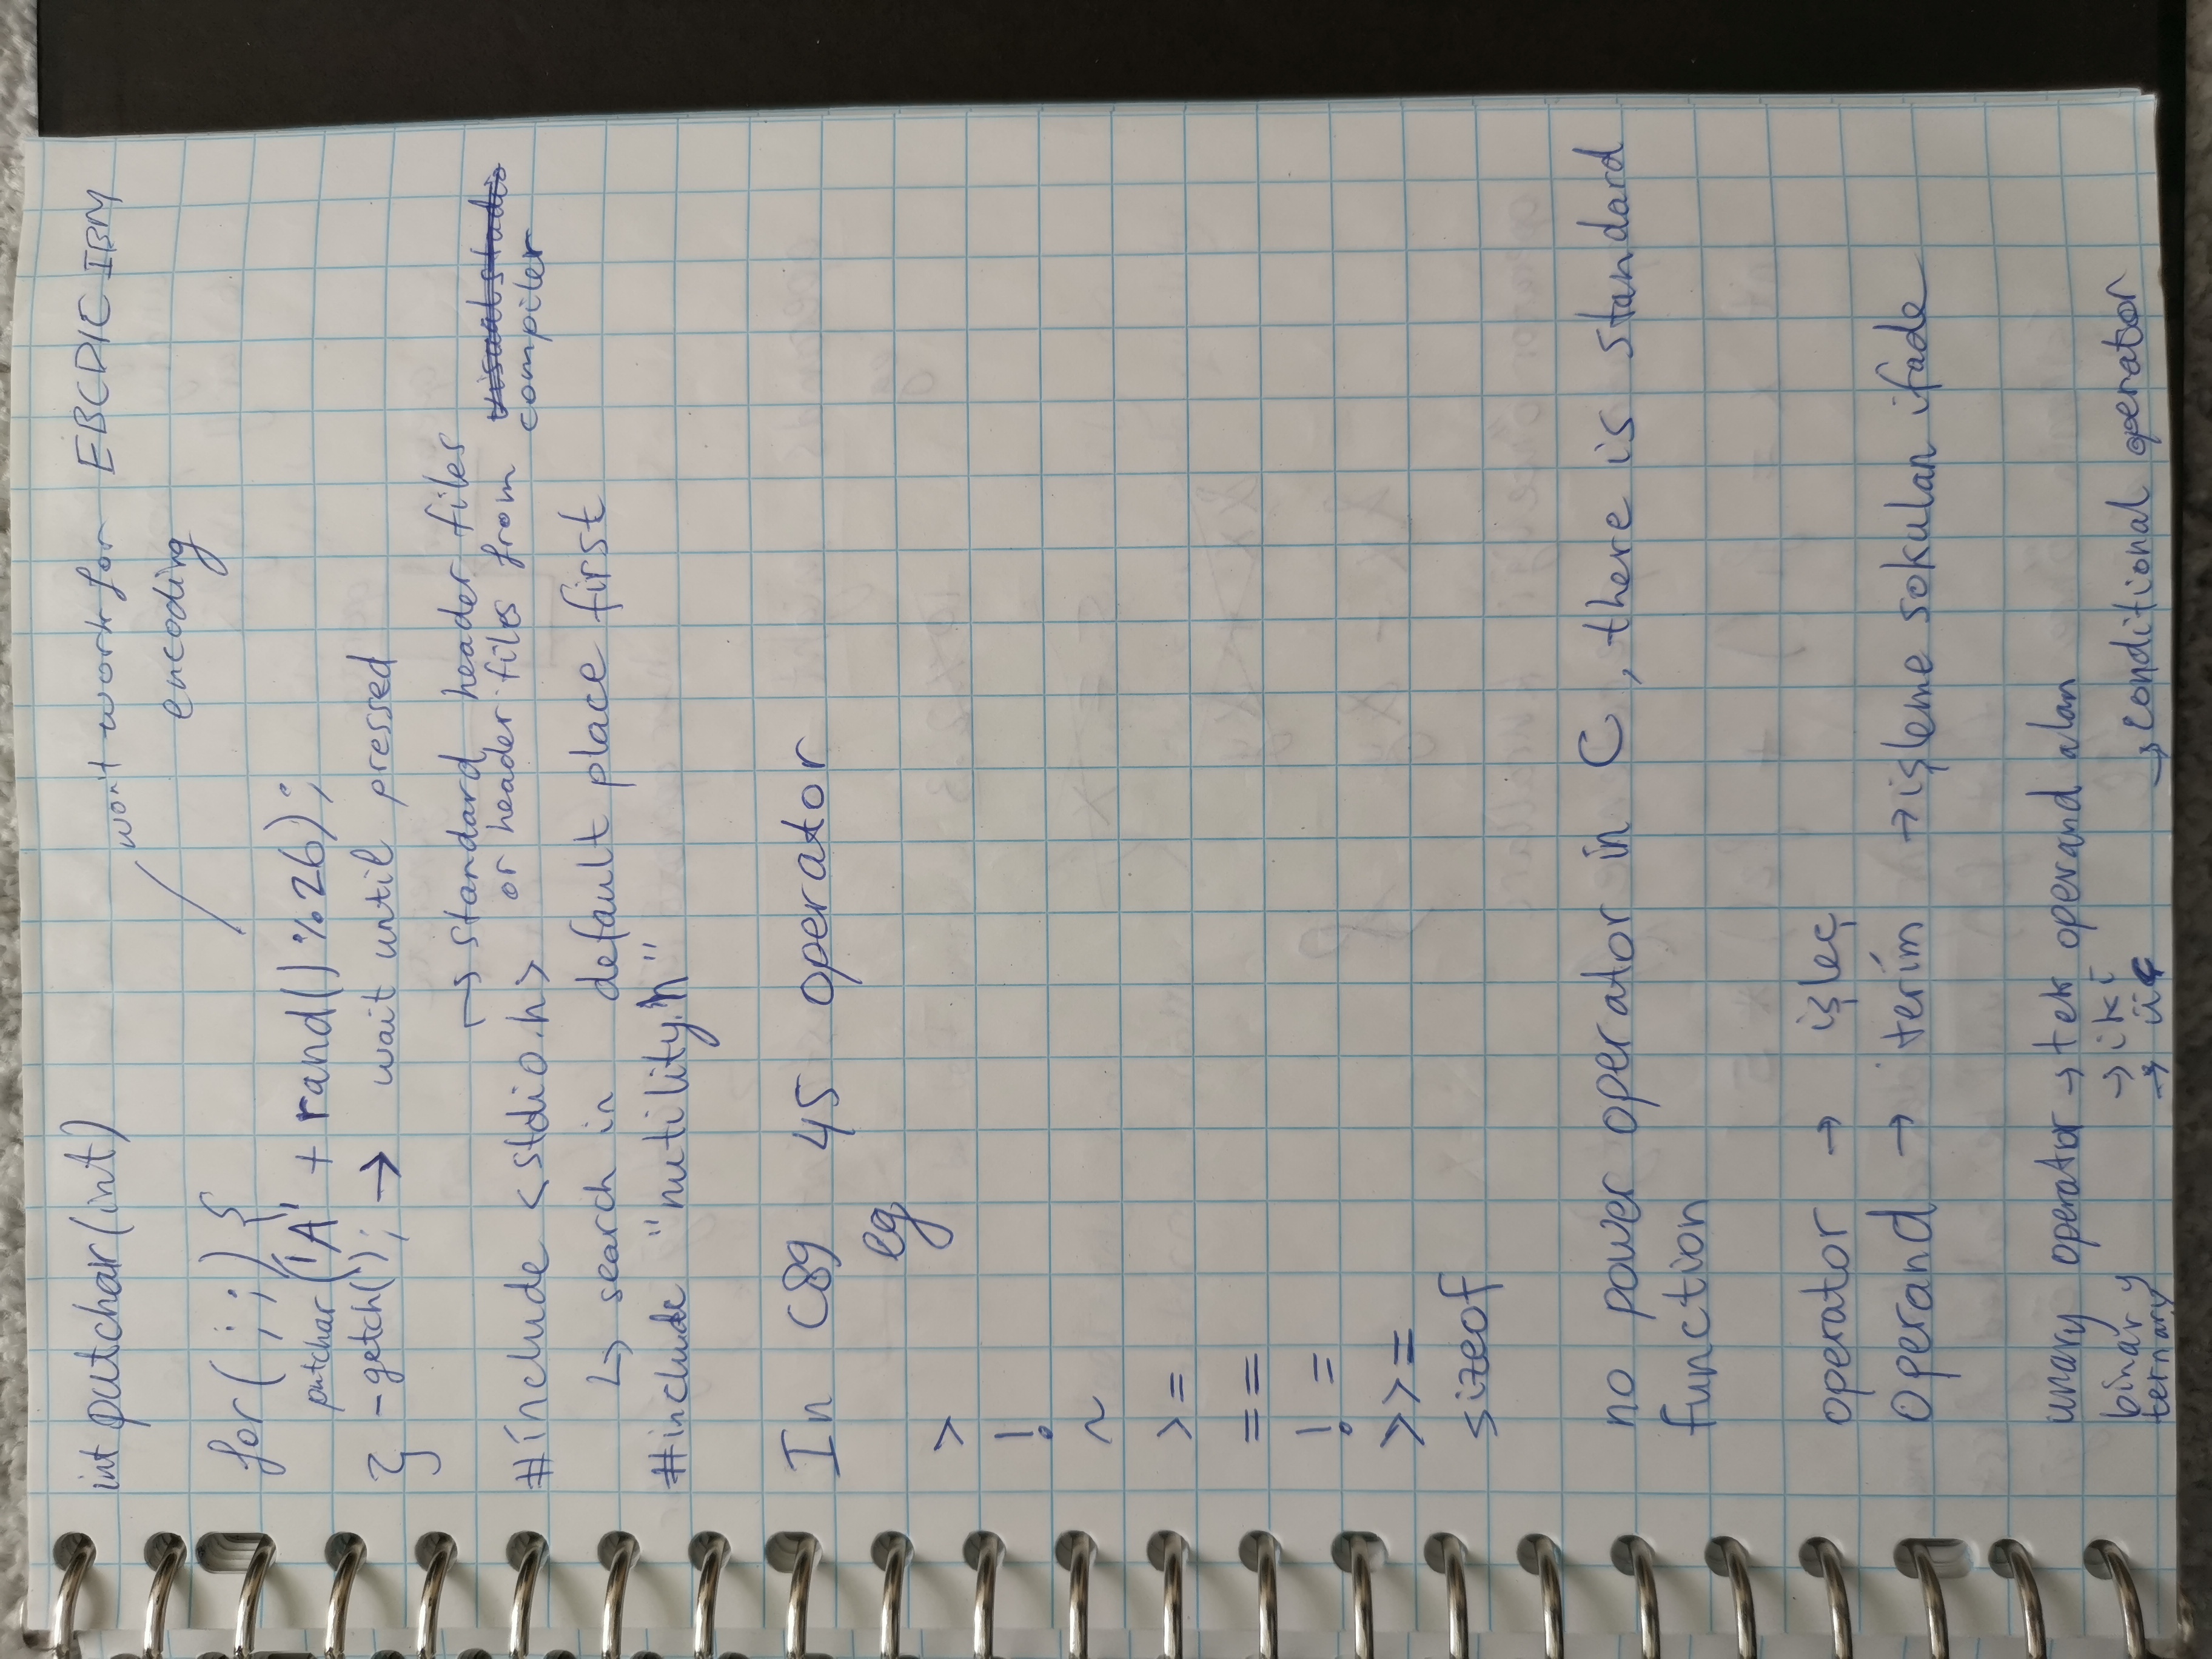 int putchar(int)
won't work for EBCDIC IBM
encoding
for(;;) {
putchar('A' + rand()%26);
} _getch(); → wait until pressed
↱ standard header files
or header files from visual studio
compiler
#include <stdio.h>
↳ search in default place first
#include "nutility.h"
In C89 45 operator
eg
>
!
~
>=
==
! =
>>=
sizeof
no power operator in C, there is standard
function
operator → işleç
operand → terim → işleme sokulan ifade
unary operator → tek operand alan
binary → iki
ternary → üç → conditional operator